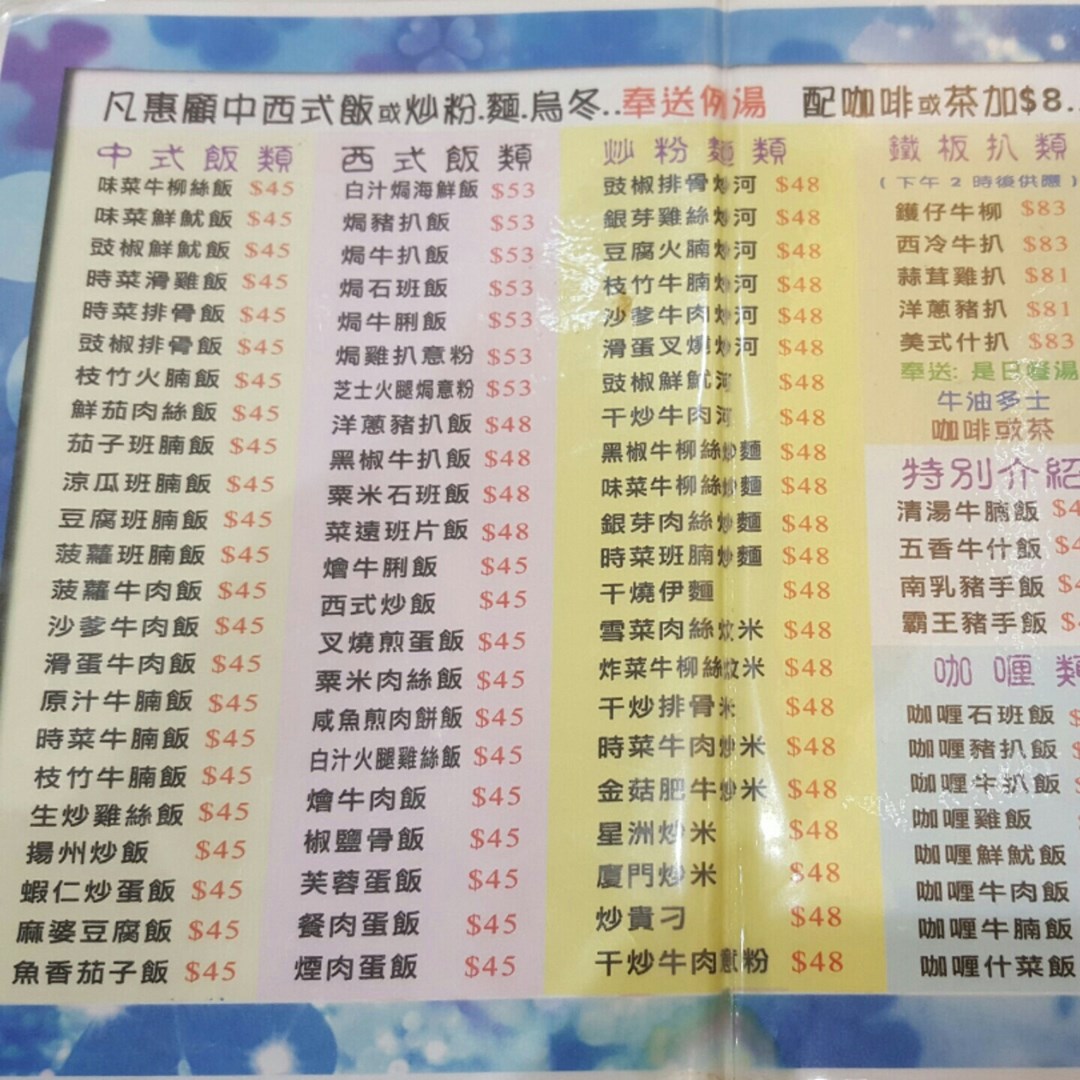 凡惠顧中西式飯或炒粉.麵.烏冬..奉送例湯 配咖啡或茶加$8..
中式飯類
味菜牛柳絲飯 $45
味菜鮮魷飯 $45
豉椒鮮魷飯 $45
時菜滑雞飯 $45
時菜排骨飯 $45
豉椒排骨飯 $45
枝竹火腩飯 $45
鮮茄肉絲飯 $45
茄子班腩飯 $45
涼瓜班腩飯 $45
豆腐班腩飯 $45
菠蘿班腩飯 $45
菠蘿牛肉飯 $45
沙爹牛肉飯 $45
滑蛋牛肉飯 $45
原汁牛腩飯 $45
時菜牛腩飯 $45
枝竹牛腩飯 $45
生炒雞絲飯 $45
揚州炒飯 $45
蝦仁炒蛋飯 $45
麻婆豆腐飯 $45
魚香茄子飯 $45
西式飯類
白汁焗海鮮飯 $53
焗豬扒飯 $53
焗牛扒飯 $53
焗石班飯 $53
焗牛脷飯 $53
焗雞扒意粉 $53
芝士火腿焗意粉 $53
洋蔥豬扒飯 $48
黑椒牛扒飯 $48
粟米石班飯 $48
菜遠班片飯 $48
燴牛脷飯 $45
西式炒飯 $45
叉燒煎蛋飯 $45
粟米肉絲飯 $45
咸魚煎肉餅飯 $45
白汁火腿雞絲飯 $45
燴牛肉飯 $45
椒鹽骨飯 $45
芙蓉蛋飯 $45
餐肉蛋飯 $45
煙肉蛋飯 $45
炒粉麵類
豉椒排骨炒河 $48
銀芽雞絲炒河 $48
豆腐火腩炒河 $48
枝竹牛腩炒河 $48
沙爹牛肉炒河 $48
滑蛋叉燒炒河 $48
豉椒鮮魷河 $48
干炒牛肉河 $48
黑椒牛柳絲炒麵 $48
味菜牛柳絲炒麵 $48
銀芽肉絲炒麵 $48
時菜班腩炒麵 $48
干燒伊麵 $48
雪菜肉絲炆米 $48
炸菜牛柳絲炆米 $48
干炒排骨米 $48
時菜牛肉炒米 $48
金菇肥牛炒米 $48
星洲炒米 $48
廈門炒米 $48
炒貴刁 $48
干炒牛肉意粉 $48
鐵板扒類
(下午2時後供應)
鑊仔牛柳 $83
西冷牛扒 $83
蒜茸雞扒 $81
洋蔥豬扒 $81
美式什扒 $83
奉送: 是日餐湯
牛油多士
咖啡或茶
特別介紹
清湯牛腩飯 $4
五香牛什飯 $4
南乳豬手飯 $4
霸王豬手飯 $
咖喱類
咖喱石班飯 $
咖喱豬扒飯 $
咖喱牛扒飯 $
咖喱雞飯
咖喱鮮魷飯
咖喱牛肉飯
咖喱牛腩飯
咖喱什菜飯